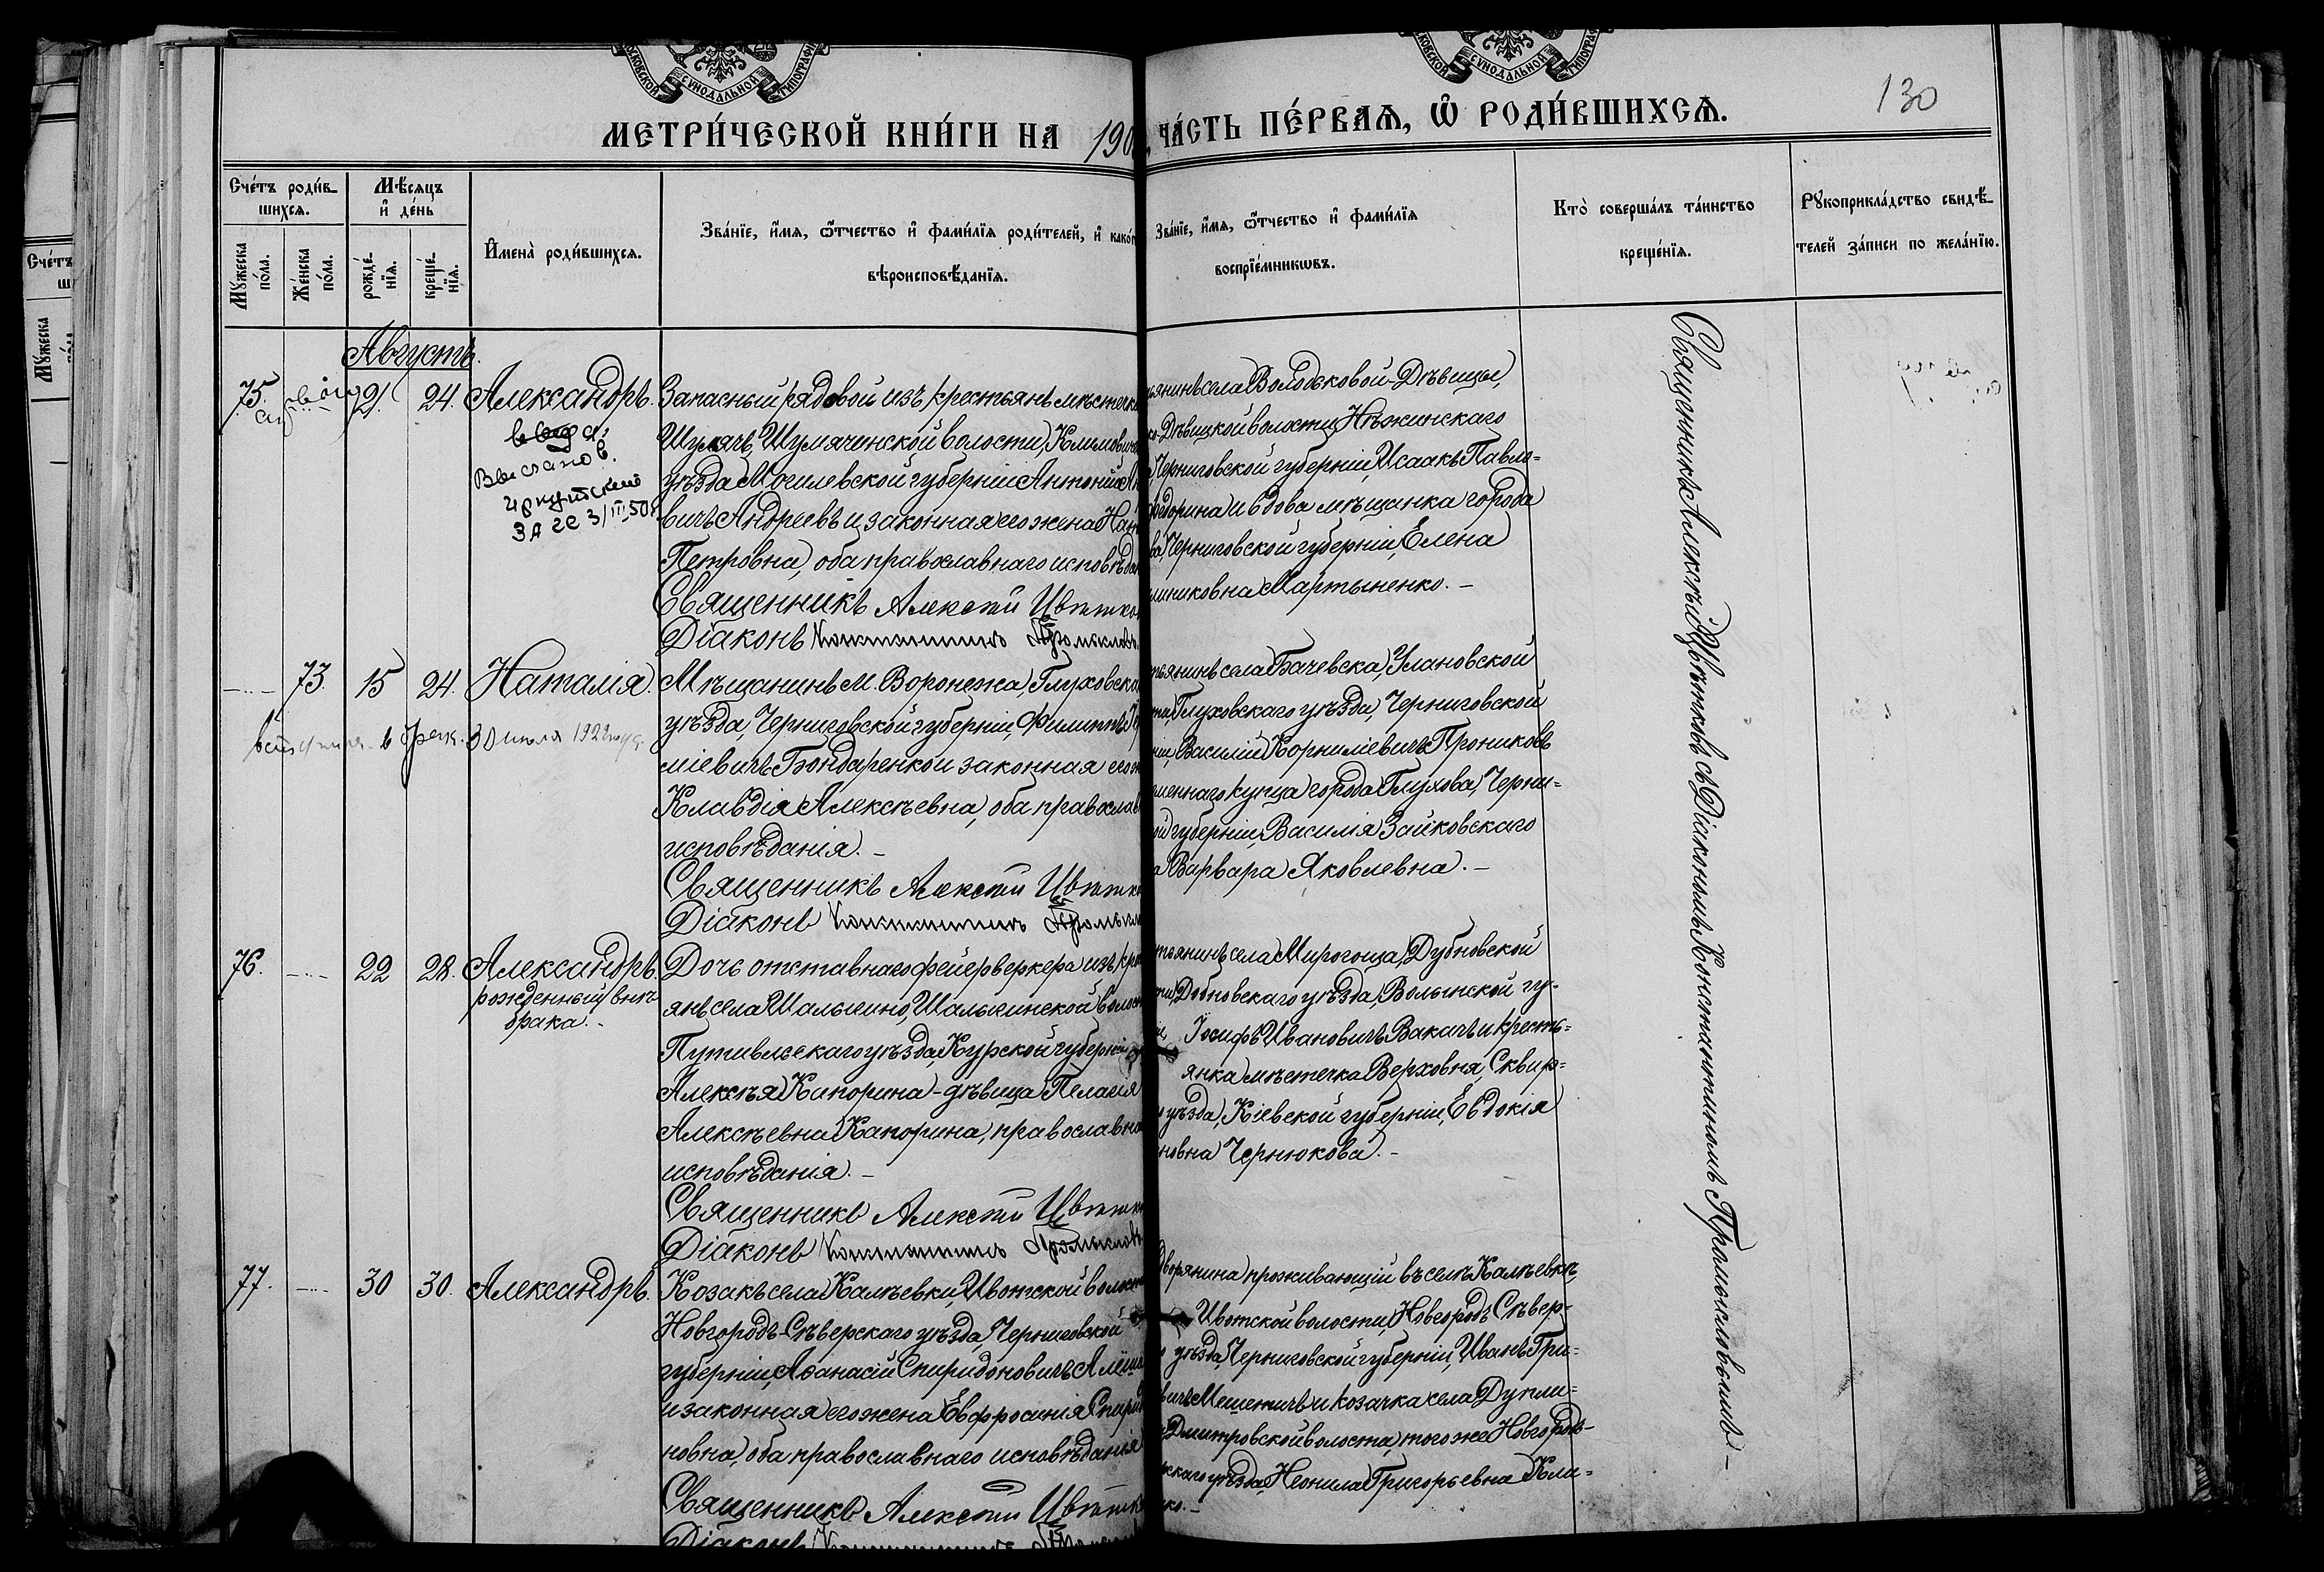 МОСКОВСКОЙ СѴНОДАЛЬНОЙ ТИПОГРАФІ
МОСКОВСКОЙ СѴНОДАЛЬНОЙ ТИПОГРАФІ
130
МЕТРИ́ЧЕСКОЙ КНИ́ГИ НА 190
ЧА́СТЬ ПЕ́РВАѦ, Ѡ҆ РОДИ́ВШИХСѦ.
Сче́тъ роди́в-
шихсѧ.
Мѣ́сѧцъ
и҆ де́нь
Мꙋ́жеска
по́ла.
Же́нска
по́ла.
рожде́-
нїѧ.
креще́-
нїѧ.
И҆мена̀ роди́вшихсѧ.
Зва́нїе, и҆́мѧ, ѻ҆́тчество и҆ фами́лїѧ роди́телей, и҆ како́г
вѣроисповѣ́данїѧ.
Зва́нїе, и҆́мѧ, ѻ҆́тчество и҆ фами́лїѧ
воспрїе́мникѡвъ.
Кто̀ соверша́лъ та́инство
креще́нїѧ.
Рꙋкоприкла́дство свидѣ́-
телей за́писи по жела́нїю.
Сче́тъ
Мꙋ́жеска
Августъ.
75. 21 24. Александръ.
Высланов.
Иркутское
ЗАГС 3/III 50г
Запасный рядовой изъ крестьянъ мѣстечка
Шумячъ, Шумяченской волости, Климович
уѣзда Могилевской губерніи Антоній Ан
вичъ Андреевъ и законная его жена На
Петровна, оба православнаго исповѣда
Священникъ Алексѣй Цвѣтко
Діаконъ Константинъ Промысловъ
ьянинъ села Володьковой-Дѣвицы,
ко-Дѣвицкой волости, Нѣжинскаго
Черниговской губерніи, Исаакъ Павло-
и вдова мѣщанка города
ва, Черниговской губерніи, Елена
никовна Мартыненко. -
- 73. 15 24. Наталія.
в брак. 30 июля 1922 года.
Мѣщанинъ м. Воронежа, Глуховска
уѣзда, Черниговской губерніи, Филиппъ
міевичъ Бондаренко и законная его ж
Клавдія Алексѣевна, оба православ
исповѣданія. -
Священникъ Алексѣй Цвѣтко
Діаконъ Константинъ Промысл
тьянинъ села Бачевска, Улановской
ти, Глуховскаго уѣзда, Черниговской
ніи, Василій Корниліевичъ Прониковъ
менного купца города Глухова, Черни-
ой губерніи, Василія Зайковскаго
а Варвара Яковлевна. -
76. - 22 28. Александръ.
рожденный внѣ
брака. -
Дочь отставнаго фейерверкера изъ кре
янъ села Шалыгино, Шалыгинской волост
Путивльскаго уѣзда, Курской губерніи
Алексѣя Капорина - дѣвица Пелагія
Алексѣевна Капорина, православна
исповѣданія. -
Священникъ Алексѣй Цвѣтко
Діаконъ Константинъ Промыслов
тьянинъ села Мирогоща, Дубновской
ти, Дубновскаго уѣзда, Волынской гу-
Іосифъ Ивановичъ Вакачъ и кресть-
янка мѣстечка Верховня, Сквир-
уѣзда, Кіевской губерніи, Евдокія
новна Чернюкова. -
77. - 30 30. Александръ.
Козакъ села Калѣевки, Ивотской волост
Новгородъ-Сѣверскаго уѣзда, Черниговской
губерніи, Аѳанасій Спиридоновичъ Алёш
и законная его жена Евфросинія Спири
новна, оба православнаго исповѣданія
Священникъ Алексѣй Цвѣтко
Діаконъ
дворянина проживающій въ селѣ Калѣевкѣ,
Ивотской волости, Новгородъ Сѣвер-
уѣзда, Черниговской губерніи, Иванъ Гри-
вичъ и козачка села Дупли-
Дмитровской волости, того же Новгородъ-
скаго уѣзда, Неонила Григорьевна Кли-
ко. -
Священникъ Алексѣй Цвѣтковъ съ Діакономъ Константиномъ Промысловымъ. -